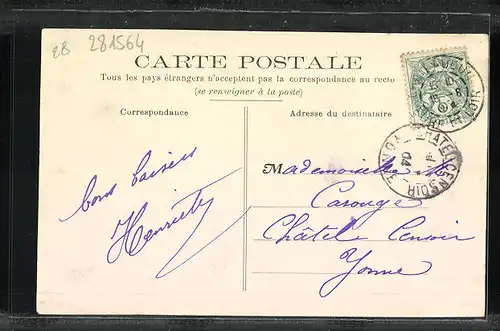 28 281564
CARTE POSTALE
Tous les pays étrangers n'acceptent pas la correspondance au recto
(se renseigner à la poste)
Correspondance
Adresse du destinataire
bons baisers
Henriette
Mademoiselle M
Carouge
Châtel Censoir
Yonne
CHATEL-CENSOIR
YONNE
04